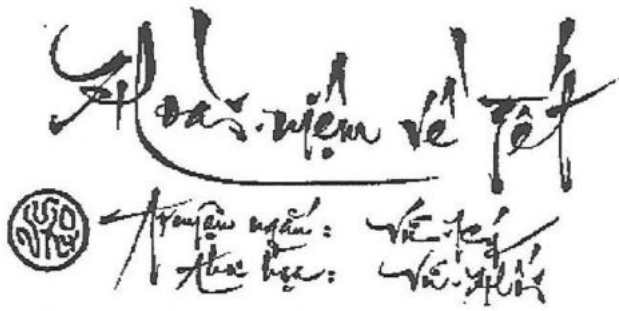 Hoài niệm về Tết
Truyện ngắn: Vũ-Ký
Thư họa: Vũ-Hối